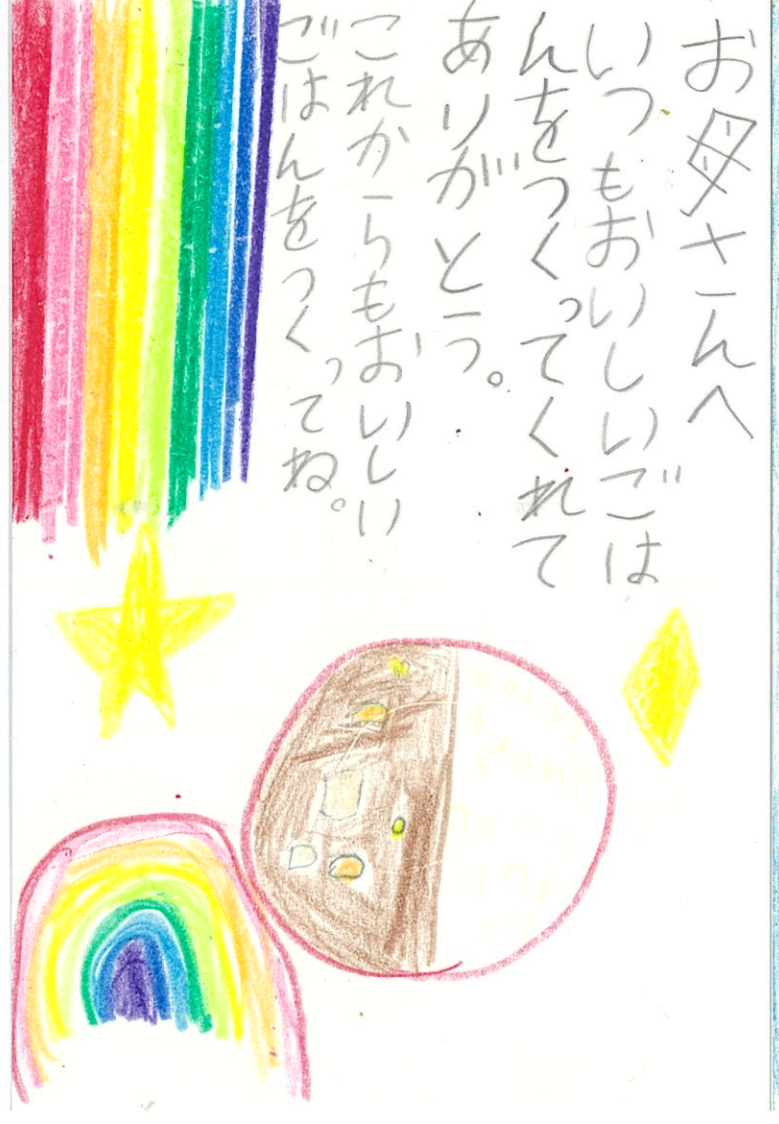 お母さんへ
いつもおいしいごは
んをつくってくれて
ありがとう。
これからもおいしい
ごはんをつくってね。